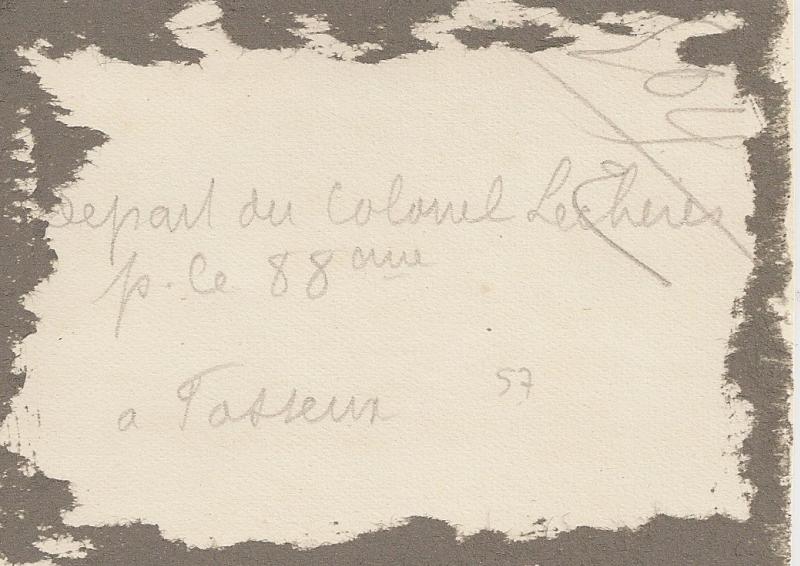 Depart du Colonel Lecheres
p. le 88 eme
a Tasseux 57